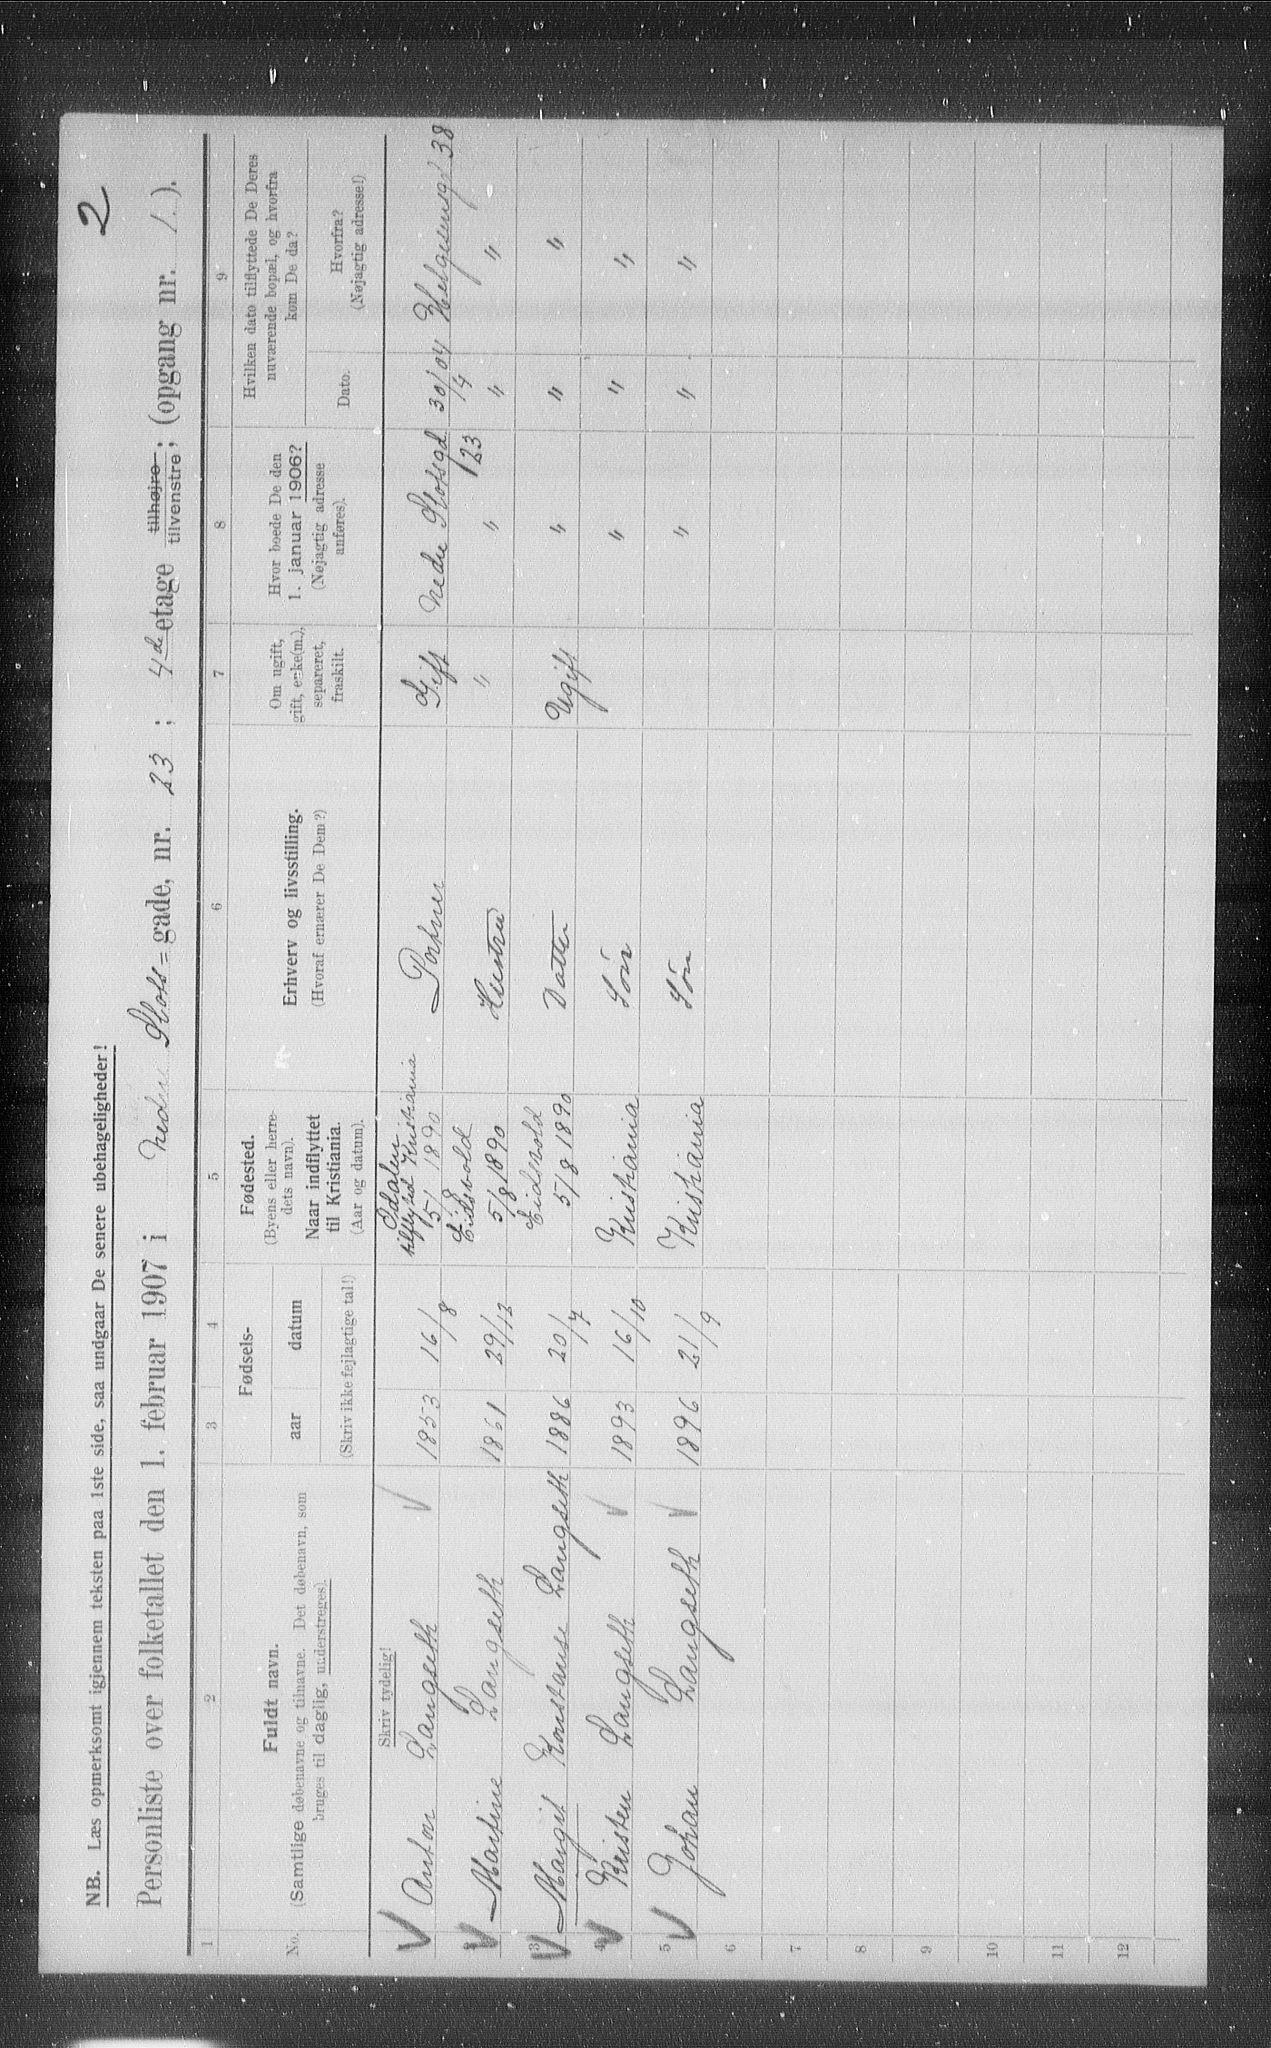 2
NB. Læs opmerksomt igjennem teksten paa 1ste side, saa undgaar De senere ubehageligheder!
Personliste over folketallet den 1. februar 1907 i Nedre Slots=gade, nr. 23 ; 4de etage tilhøjre tilvenstre ; (opgang nr. 1.).
1 2 3 4 5 6 7 8 9
No.
Fuldt navn.
(Samtlige døbenavne og tilnavne. Det døbenavn, som
bruges til daglig, understreges).
Skriv tydelig!
Fødsels-
aar datum
(Skriv ikke fejlagtige tal!)
Fødested.
(Byens eller herre-
dets navn).
Naar indflyttet
til Kristiania.
(Aar og datum).
Erhverv og livsstilling.
(Hvoraf ernærer De Dem?)
Om ugift,
gift, enke(m.),
separeret,
fraskilt.
Hvor boede De den
1. januar 1906?
(Nøjagtig adresse
anføres).
Hvilken dato tilflyttede De Deres
nuværende bopæl, og hvorfra
kom De da?
Dato.
Hvorfra?
(Nøjagtig adresse!)
Odalen
tilflytted Kristiania
Anton Langseth 1853 16/8 1890 Portner Gift Nedre Slotsgd 30/4 04 Helgesensgt 38
Eidsvold /23
Martine Langseth 1861 29/12 5/8 1890 Hustru " " " "
3 Eidsvold
Margit Konstanse Langseth 1886 20/7 5/8 1890 Datter Ugift " " "
4 Kristen Langseth 1893 16/10 Kristiania Søn " " "
5 Johan Langseth 1896 21/9 Kristiania Søn " " "
6
7
8
9
10
11
12